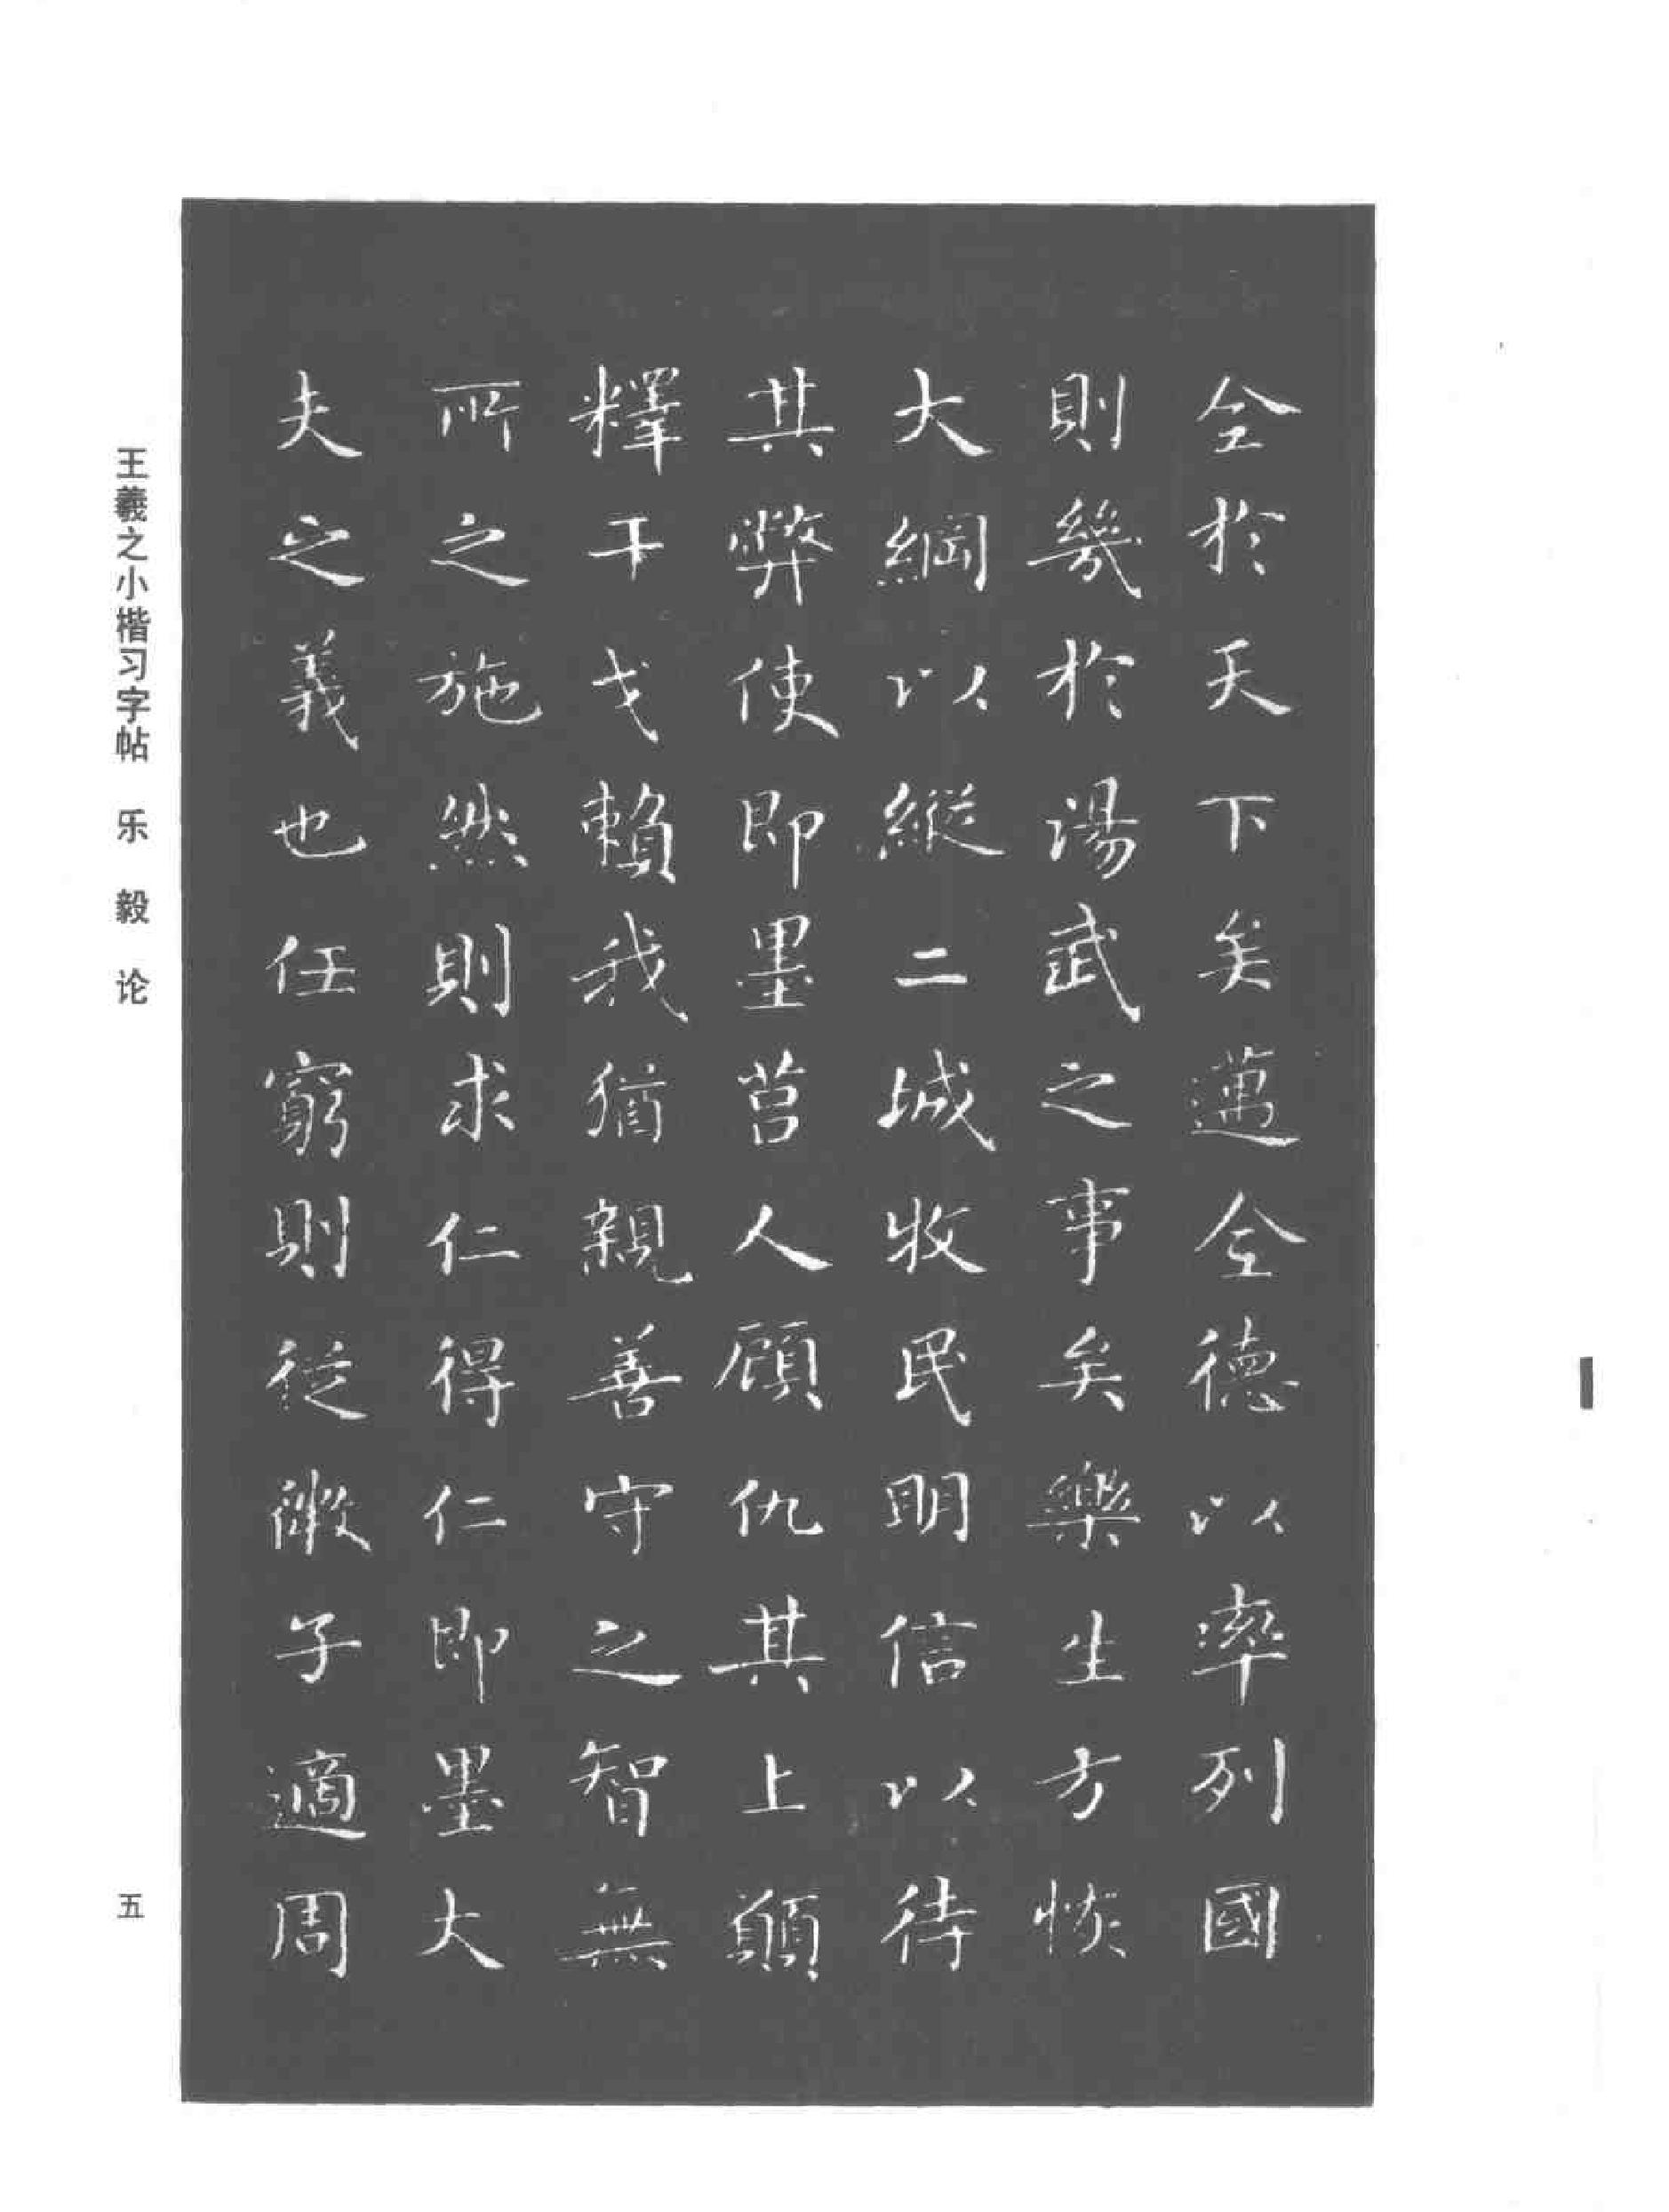 全於天下矣邁全德以率列國
則幾於湯武之事矣樂生方恢
大綱以縱二城收民明信以待
其弊使即墨莒人顧仇其上願
釋干戈賴我猶親善守之智無
所之施然則求仁得仁即墨大
夫之義也任窮則從微子適周
王羲之小楷习字帖 乐毅论
五